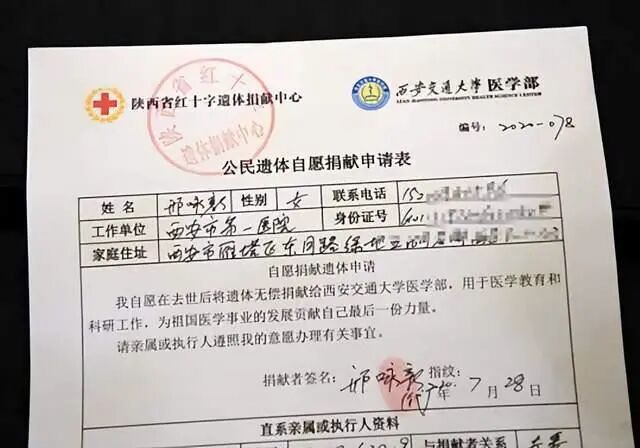 陕西省红十字遗体捐献中心
西安交通大学医学部
XI'AN JIAOTONG UNIVERSITY HEALTH SCIENCE CENTER
陕西省红十
遗体捐献中心
编号：2020-078
公民遗体自愿捐献申请表
姓名 邢咏新 性别 女 联系电话 153
工作单位 西安市第一医院 身份证号 601
家庭住址 西安市雁塔区东月路绿地
自愿捐献遗体申请
我自愿在去世后将遗体无偿捐献给西安交通大学医学部，用于医学教育和
科研工作，为祖国医学事业的发展贡献自己最后一份力量。
请亲属或执行人遵照我的意愿办理有关事宜。
捐献者签名：邢咏新 指纹：
年 7 月 28 日
直系亲属或执行人资料
与捐献者关系